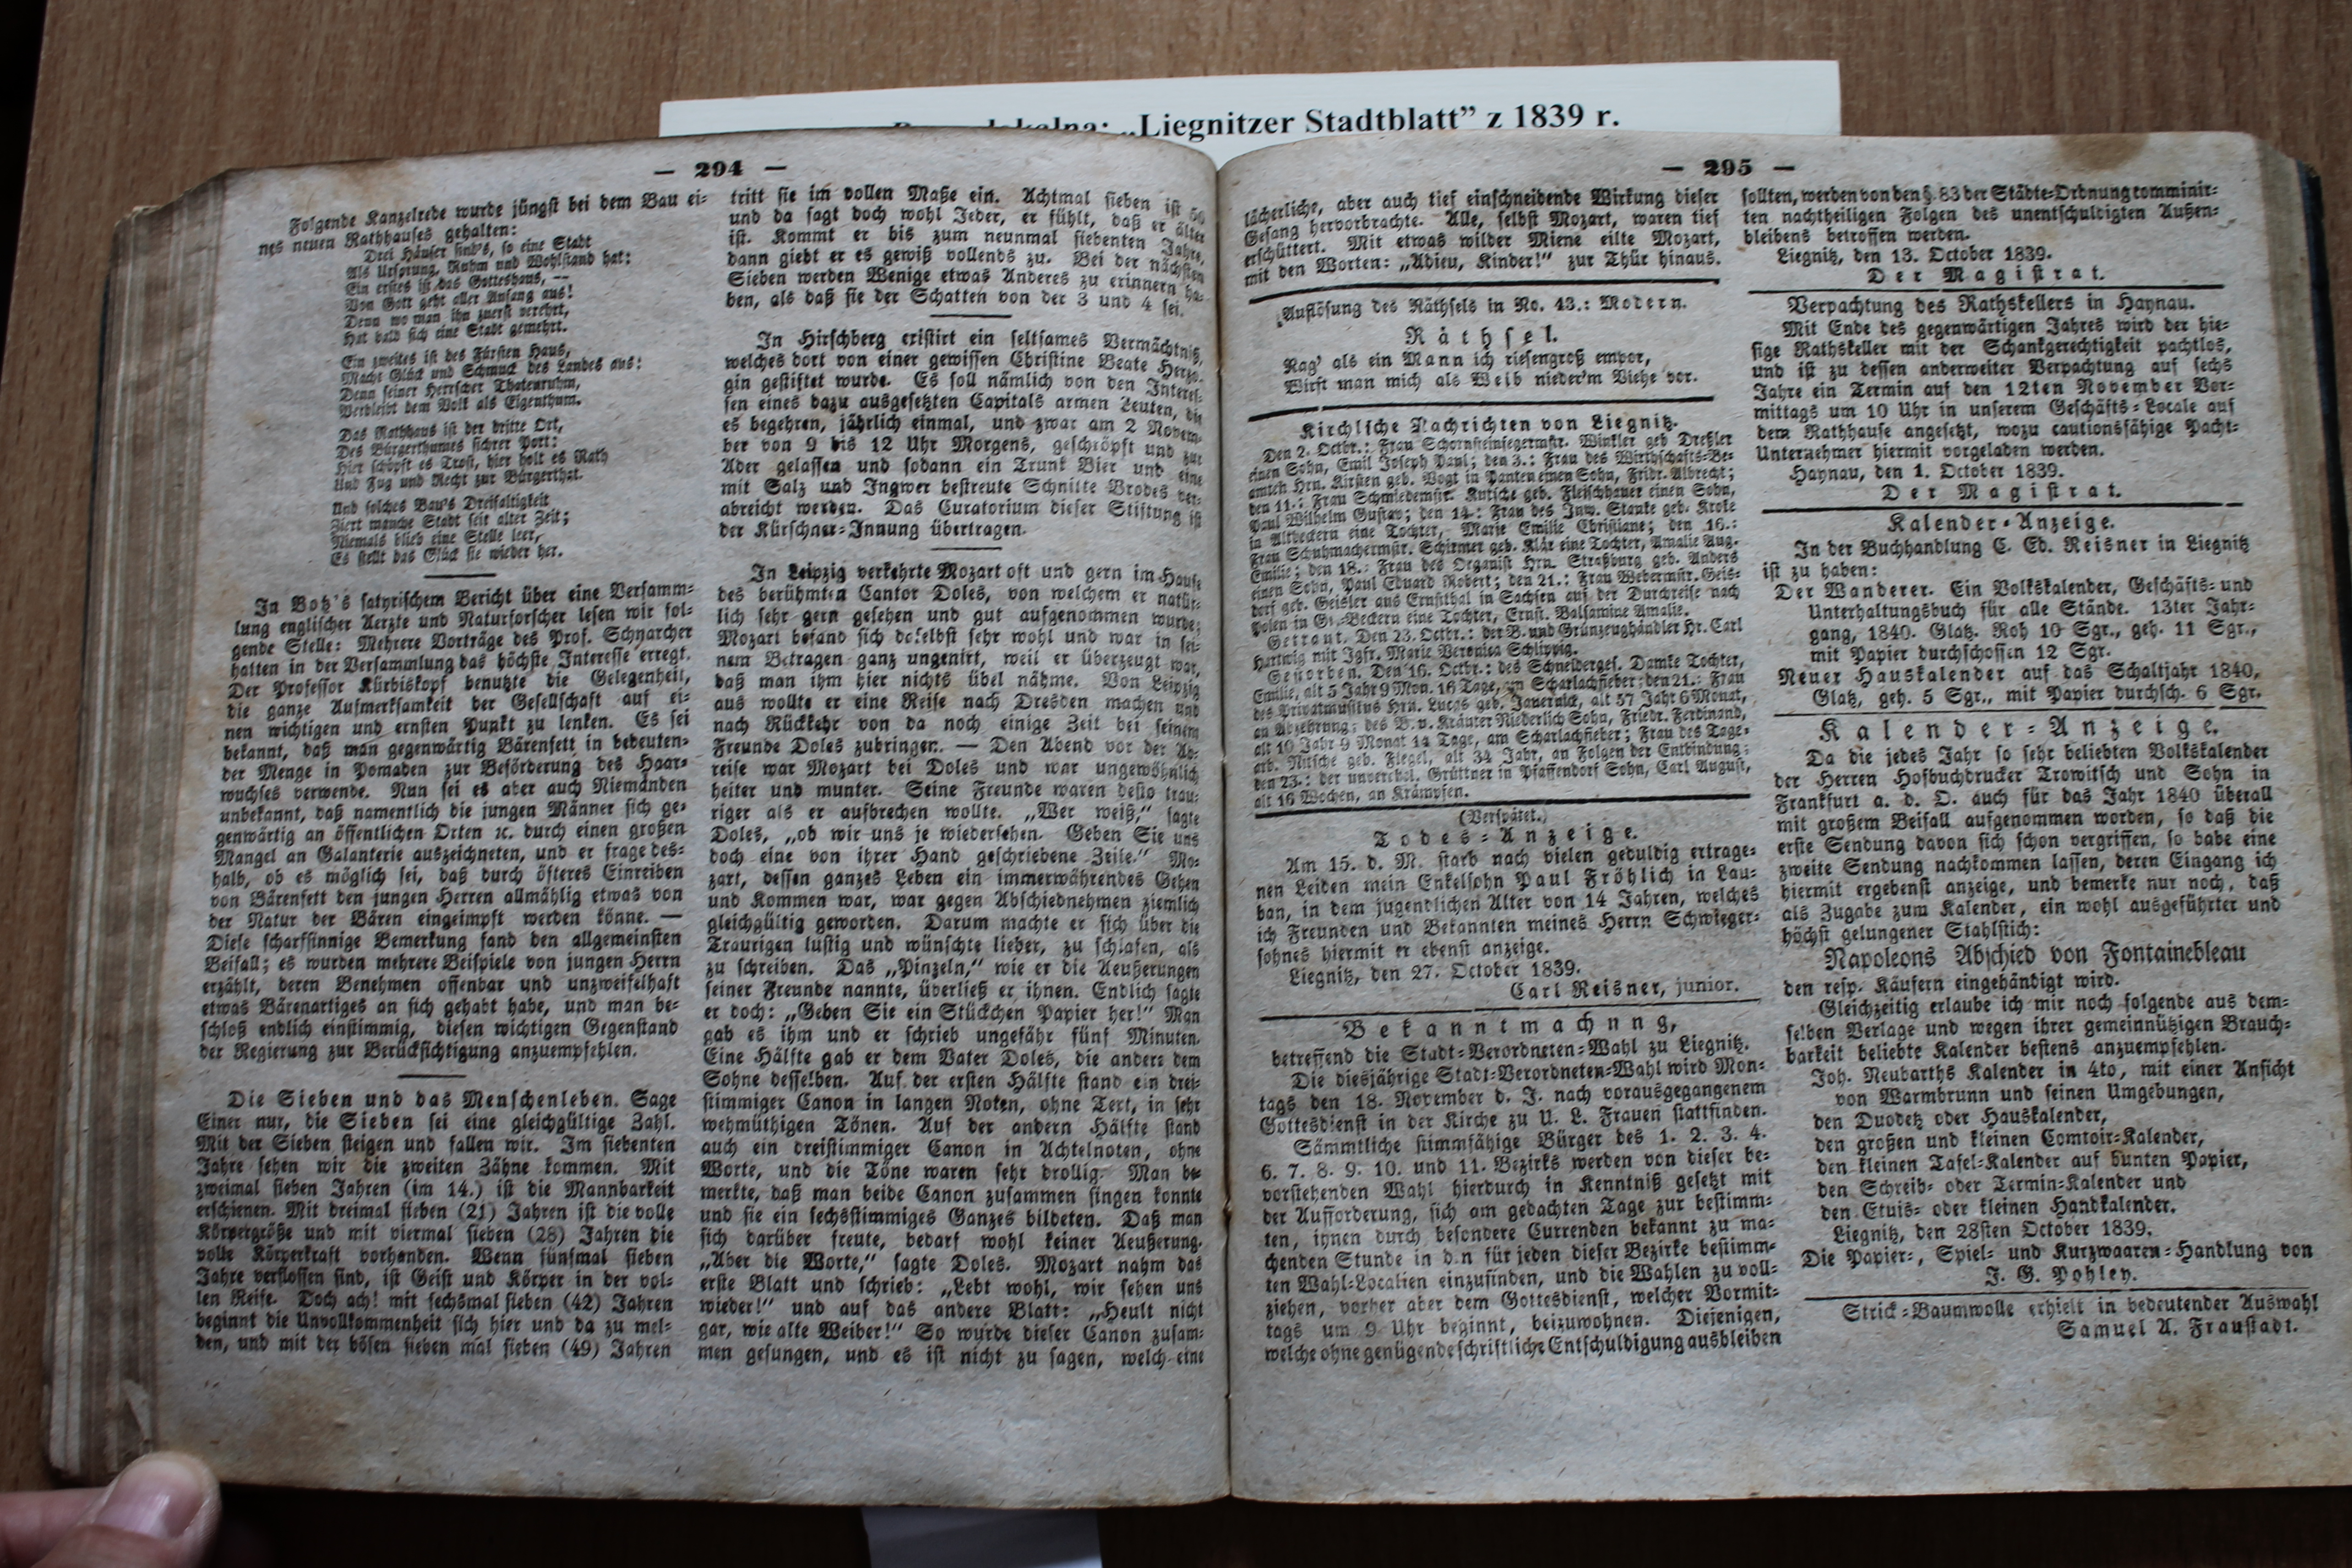 lokalna: „Liegnitzer Stadtblatt” z 1839 r.
— 294 —
Folgende Kanzelrede wurde jüngst bei dem Bau ei-
nes neuen Rathhauses gehalten:
Drei Häuser sind's, so eine Stadt
Als Ursprung, Ruhm und Wohlstand hat:
Ein erstes ist das Gotteshaus, —
Von Gott geht aller Anfang aus!
Denn wo man ihn zuerst verehrt,
Hat bald sich eine Stadt gemehrt.
Ein zweites ist des Fürsten Haus,
Macht Glück und Schmuck des Landes aus:
Denn seiner Herrscher Thatenruhm,
Verbleibt dem Volk als Eigenthum.
Das Rathhaus ist der dritte Ort,
Des Bürgerthumes sichrer Port:
Hier schöpft es Trost, hier holt es Rath
Und Fug und Recht zur Bürgerthat.
Und solches Bau's Dreifaltigkeit
Ziert manche Stadt seit alter Zeit;
Niemals blieb eine Stelle leer,
Es stellt das Glück sie wieder her.
In Botz's satyrischem Bericht über eine Versamm-
lung englischer Aerzte und Naturforscher lesen wir fol-
gende Stelle: Mehrere Vorträge des Prof. Schnarcher
hatten in der Versammlung das höchste Interesse erregt.
Der Professor Kürbiskopf benutzte die Gelegenheit,
die ganze Aufmerksamkeit der Gesellschaft auf ei-
nen wichtigen und ernsten Punkt zu lenken. Es sei
bekannt, daß man gegenwärtig Bärenfett in bedeuten-
der Menge in Pomaden zur Beförderung des Haar-
wuchses verwende. Nun sei es aber auch Niemanden
unbekannt, daß namentlich die jungen Männer sich ge-
genwärtig an öffentlichen Orten ꝛc. durch einen großen
Mangel an Galanterie auszeichneten, und er frage des-
halb, ob es möglich sei, daß durch öfteres Einreiben
von Bärenfett den jungen Herren allmählig etwas von
der Natur der Bären eingeimpft werden könne. —
Diese scharfsinnige Bemerkung fand den allgemeinsten
Beifall; es wurden mehrere Beispiele von jungen Herrn
erzählt, deren Benehmen offenbar und unzweifelhaft
etwas Bärenartiges an sich gehabt habe, und man be-
schloß endlich einstimmig, diesen wichtigen Gegenstand
der Regierung zur Berücksichtigung anzuempfehlen.
Die Sieben und das Menschenleben. Sage
Einer nur, die Sieben sei eine gleichgültige Zahl.
Mit der Sieben steigen und fallen wir. Im siebenten
Jahre sehen wir die zweiten Zähne kommen. Mit
zweimal sieben Jahren (im 14.) ist die Mannbarkeit
erschienen. Mit dreimal sieben (21) Jahren ist die volle
Körpergröße und mit viermal sieben (28) Jahren die
volle Körperkraft vorhanden. Wenn fünfmal sieben
Jahre verflossen sind, ist Geist und Körper in der vol-
len Reife. Doch ach! mit sechsmal sieben (42) Jahren
beginnt die Unvollkommenheit sich hier und da zu mel-
den, und mit der bösen sieben mal sieben (49) Jahren
tritt sie im vollen Maße ein. Achtmal sieben ist 56
und da sagt doch wohl Jeder, er fühlt, daß er älter
ist. Kommt er bis zum neunmal siebenten Jahre,
dann giebt er es gewiß vollends zu. Bei der nächsten
Sieben werden Wenige etwas Anderes zu erinnern ha-
ben, als daß sie der Schatten von der 3 und 4 sei.
In Hirschberg existirt ein seltsames Vermächtniß,
welches dort von einer gewissen Christine Beate Herzo-
gin gestiftet wurde. Es soll nämlich von den Interes-
sen eines dazu ausgesetzten Capitals armen Leuten, die
es begehren, jährlich einmal, und zwar am 2 Novem-
ber von 9 bis 12 Uhr Morgens, geschröpft und zur
Ader gelassen und sodann ein Trunk Bier und eine
mit Salz und Ingwer bestreute Schnitte Brodes ver-
abreicht werden. Das Curatorium dieser Stiftung ist
der Kürschner-Innung übertragen.
In Leipzig verkehrte Mozart oft und gern im Hause
des berühmten Cantor Doles, von welchem er natür-
lich sehr gern gesehen und gut aufgenommen wurde;
Mozart befand sich daselbst sehr wohl und war in sei-
nem Betragen ganz ungenirt, weil er überzeugt war,
daß man ihm hier nichts übel nähme. Von Leipzig
aus wollte er eine Reise nach Dresden machen und
nach Rückkehr von da noch einige Zeit bei seinem
Freunde Doles zubringen. — Den Abend vor der Ab-
reise war Mozart bei Doles und war ungewöhnlich
heiter und munter. Seine Freunde waren desto trau-
riger als er aufbrechen wollte. „Wer weiß,“ sagte
Doles, „ob wir uns je wiedersehen. Geben Sie uns
doch eine von ihrer Hand geschriebene Zeile.“ Mo-
zart, dessen ganzes Leben ein immerwährendes Gehen
und Kommen war, war gegen Abschiednehmen ziemlich
gleichgültig geworden. Darum machte er sich über die
Traurigen lustig und wünschte lieber, zu schlafen, als
zu schreiben. Das „Pinzeln,“ wie er die Aeußerungen
seiner Freunde nannte, überließ er ihnen. Endlich sagte
er doch: „Geben Sie ein Stückchen Papier her!“ Man
gab es ihm und er schrieb ungefähr fünf Minuten.
Eine Hälfte gab er dem Vater Doles, die andere dem
Sohne desselben. Auf der ersten Hälfte stand ein drei-
stimmiger Canon in langen Noten, ohne Text, in sehr
wehmüthigen Tönen. Auf der andern Hälfte stand
auch ein dreistimmiger Canon in Achtelnoten, ohne
Worte, und die Töne waren sehr drollig. Man be-
merkte, daß man beide Canon zusammen singen konnte
und sie ein sechsstimmiges Ganzes bildeten. Daß man
sich darüber freute, bedarf wohl keiner Aeußerung.
„Aber die Worte,“ sagte Doles. Mozart nahm das
erste Blatt und schrieb: „Lebt wohl, wir sehen uns
wieder!“ und auf das andere Blatt: „Heult nicht
gar, wie alte Weiber!“ So wurde dieser Canon zusam-
men gesungen, und es ist nicht zu sagen, welch eine
— 295 —
lächerliche, aber auch tief einschneidende Wirkung dieser
Gesang hervorbrachte. Alle, selbst Mozart, waren tief
erschüttert. Mit etwas wilder Miene eilte Mozart,
mit den Worten: „Adieu, Kinder!“ zur Thür hinaus.
Auflösung des Räthsels in No. 43.: Modern.
Räthsel.
Rag' als ein Mann ich riesengroß empor,
Wirft man mich als Weib nieder'm Viehe vor.
Kirchliche Nachrichten von Liegnitz.
Den 2. Octbr.: Frau Schornsteinfegermstr. Winkler geb Dreßler
einen Sohn, Emil Joseph Paul; den 3.: Frau des Wirthschafts-Be-
amten Hrn. Kirsten geb. Vogt in Panten einen Sohn, Fridr. Albrecht;
den 11.: Frau Schmiedemstr. Kutsche geb. Fleischhauer einen Sohn,
Paul Wilhelm Gustav; den 14.: Frau des Inw. Stanke geb. Kroke
in Altbeckern eine Tochter, Marie Emilie Christiane; den 16.:
Frau Schuhmachermstr. Schirmer geb. Klär eine Tochter, Amalie Aug.
Emilie; den 18.: Frau des Organist Hrn. Straßburg geb. Anders
einen Sohn, Paul Eduard Robert; den 21.: Frau Webermstr. Geis-
dorf geb. Geisler aus Ernstthal in Sachsen auf der Durchreise nach
Polen in Gr.-Beckern eine Tochter, Ernst. Balsamine Amalie.
Getraut. Den 23. Octbr.: der B. und Grünzeughändler Hr. Carl
Hartwig mit Jgfr. Marie Veronica Schlippig.
Gestorben. Den 16. Octbr.: des Schneiderges. Damke Tochter,
Emilie, alt 5 Jahr 9 Mon. 16 Tage, am Scharlachfieber; den 21.: Frau
des Privatmusikus Hrn. Lucas geb. Jauernick, alt 57 Jahr 6 Monat,
an Abzehrung; des B. u. Kräuter Niederlich Sohn, Friedr. Ferdinand,
alt 10 Jahr 9 Monat 14 Tage, am Scharlachfieber; Frau des Tage-
arb. Nitsche geb. Flegel, alt 34 Jahr, an Folgen der Entbindung;
den 23.: der unverehel. Grüttner in Pfaffendorf Sohn, Carl August,
alt 16 Wochen, an Krämpfen.
(Verspätet.)
Todes-Anzeige.
Am 15. d. M. starb nach vielen geduldig ertrage-
nen Leiden mein Enkelsohn Paul Fröhlich in Lau-
ban, in dem jugendlichen Alter von 14 Jahren, welches
ich Freunden und Bekannten meines Herrn Schwieger-
sohnes hiermit er ebenst anzeige.
Liegnitz, den 27. October 1839.
Carl Reisner, junior.
Bekanntmachnng,
betreffend die Stadt-Verordneten-Wahl zu Liegnitz.
Die diesjährige Stadt-Verordneten-Wahl wird Mon-
tags den 18. November d. J. nach vorausgegangenem
Gottesdienst in der Kirche zu U. L. Frauen stattfinden.
Sämmtliche stimmfähige Bürger des 1. 2. 3. 4.
6. 7. 8. 9. 10. und 11. Bezirks werden von dieser be-
vorstehenden Wahl hierdurch in Kenntniß gesetzt mit
der Aufforderung, sich am gedachten Tage zur bestimm-
ten, ihnen durch besondere Currenden bekannt zu ma-
chenden Stunde in d.n für jeden dieser Bezirke bestimm-
ten Wahl-Localien einzufinden, und die Wahlen zu voll-
ziehen, vorher aber dem Gottesdienst, welcher Vormit-
tags um 9 Uhr beginnt, beizuwohnen. Diejenigen,
welche ohne genügende schriftliche Entschuldigung ausbleiben
sollten, werden von den §. 83 der Städte-Ordnung comminir-
ten nachtheiligen Folgen des unentschuldigten Außen-
bleibens betroffen werden.
Liegnitz, den 13. October 1839.
Der Magistrat.
Verpachtung des Rathskellers in Haynau.
Mit Ende des gegenwärtigen Jahres wird der hie-
sige Rathskeller mit der Schankgerechtigkeit pachtlos,
und ist zu dessen anderweiter Verpachtung auf sechs
Jahre ein Termin auf den 12ten November Vor-
mittags um 10 Uhr in unserem Geschäfts-Locale auf
dem Rathhause angesetzt, wozu cautionsfähige Pacht-
Unternehmer hiermit vorgeladen werden.
Haynau, den 1. October 1839.
Der Magistrat.
Kalender-Anzeige.
In der Buchhandlung C. Ed. Reisner in Liegnitz
ist zu haben:
Der Wanderer. Ein Volkskalender, Geschäfts- und
Unterhaltungsbuch für alle Stände. 13ter Jahr-
gang, 1840. Glatz. Roh 10 Sgr., geh. 11 Sgr.,
mit Papier durchschossen 12 Sgr.
Neuer Hauskalender auf das Schaltjahr 1840,
Glatz, geh. 5 Sgr., mit Papier durchsch. 6 Sgr.
Kalender-Anzeige.
Da die jedes Jahr so sehr beliebten Volkskalender
der Herren Hofbuchdrucker Trowitsch und Sohn in
Frankfurt a. d. O. auch für das Jahr 1840 überall
mit großem Beifall aufgenommen worden, so daß die
erste Sendung davon sich schon vergriffen, so habe eine
zweite Sendung nachkommen lassen, deren Eingang ich
hiermit ergebenst anzeige, und bemerke nur noch, daß
als Zugabe zum Kalender, ein wohl ausgeführter und
höchst gelungener Stahlstich:
Napoleons Abschied von Fontainebleau
den resp. Käufern eingehändigt wird.
Gleichzeitig erlaube ich mir noch folgende aus dem-
selben Verlage und wegen ihrer gemeinnützigen Brauch-
barkeit beliebte Kalender bestens anzuempfehlen.
Joh. Neubarths Kalender in 4to, mit einer Ansicht
von Warmbrunn und seinen Umgebungen,
den Duodetz oder Hauskalender,
den großen und kleinen Comtoir-Kalender,
den kleinen Tafel-Kalender auf bunten Papier,
den Schreib- oder Termin-Kalender und
den Etuis- oder kleinen Handkalender.
Liegnitz, den 28sten October 1839.
Die Papier-, Spiel- und Kurzwaaren-Handlung von
J. G. Pohley.
Strick-Baumwolle erhielt in bedeutender Auswahl
Samuel A. Fraustadt.